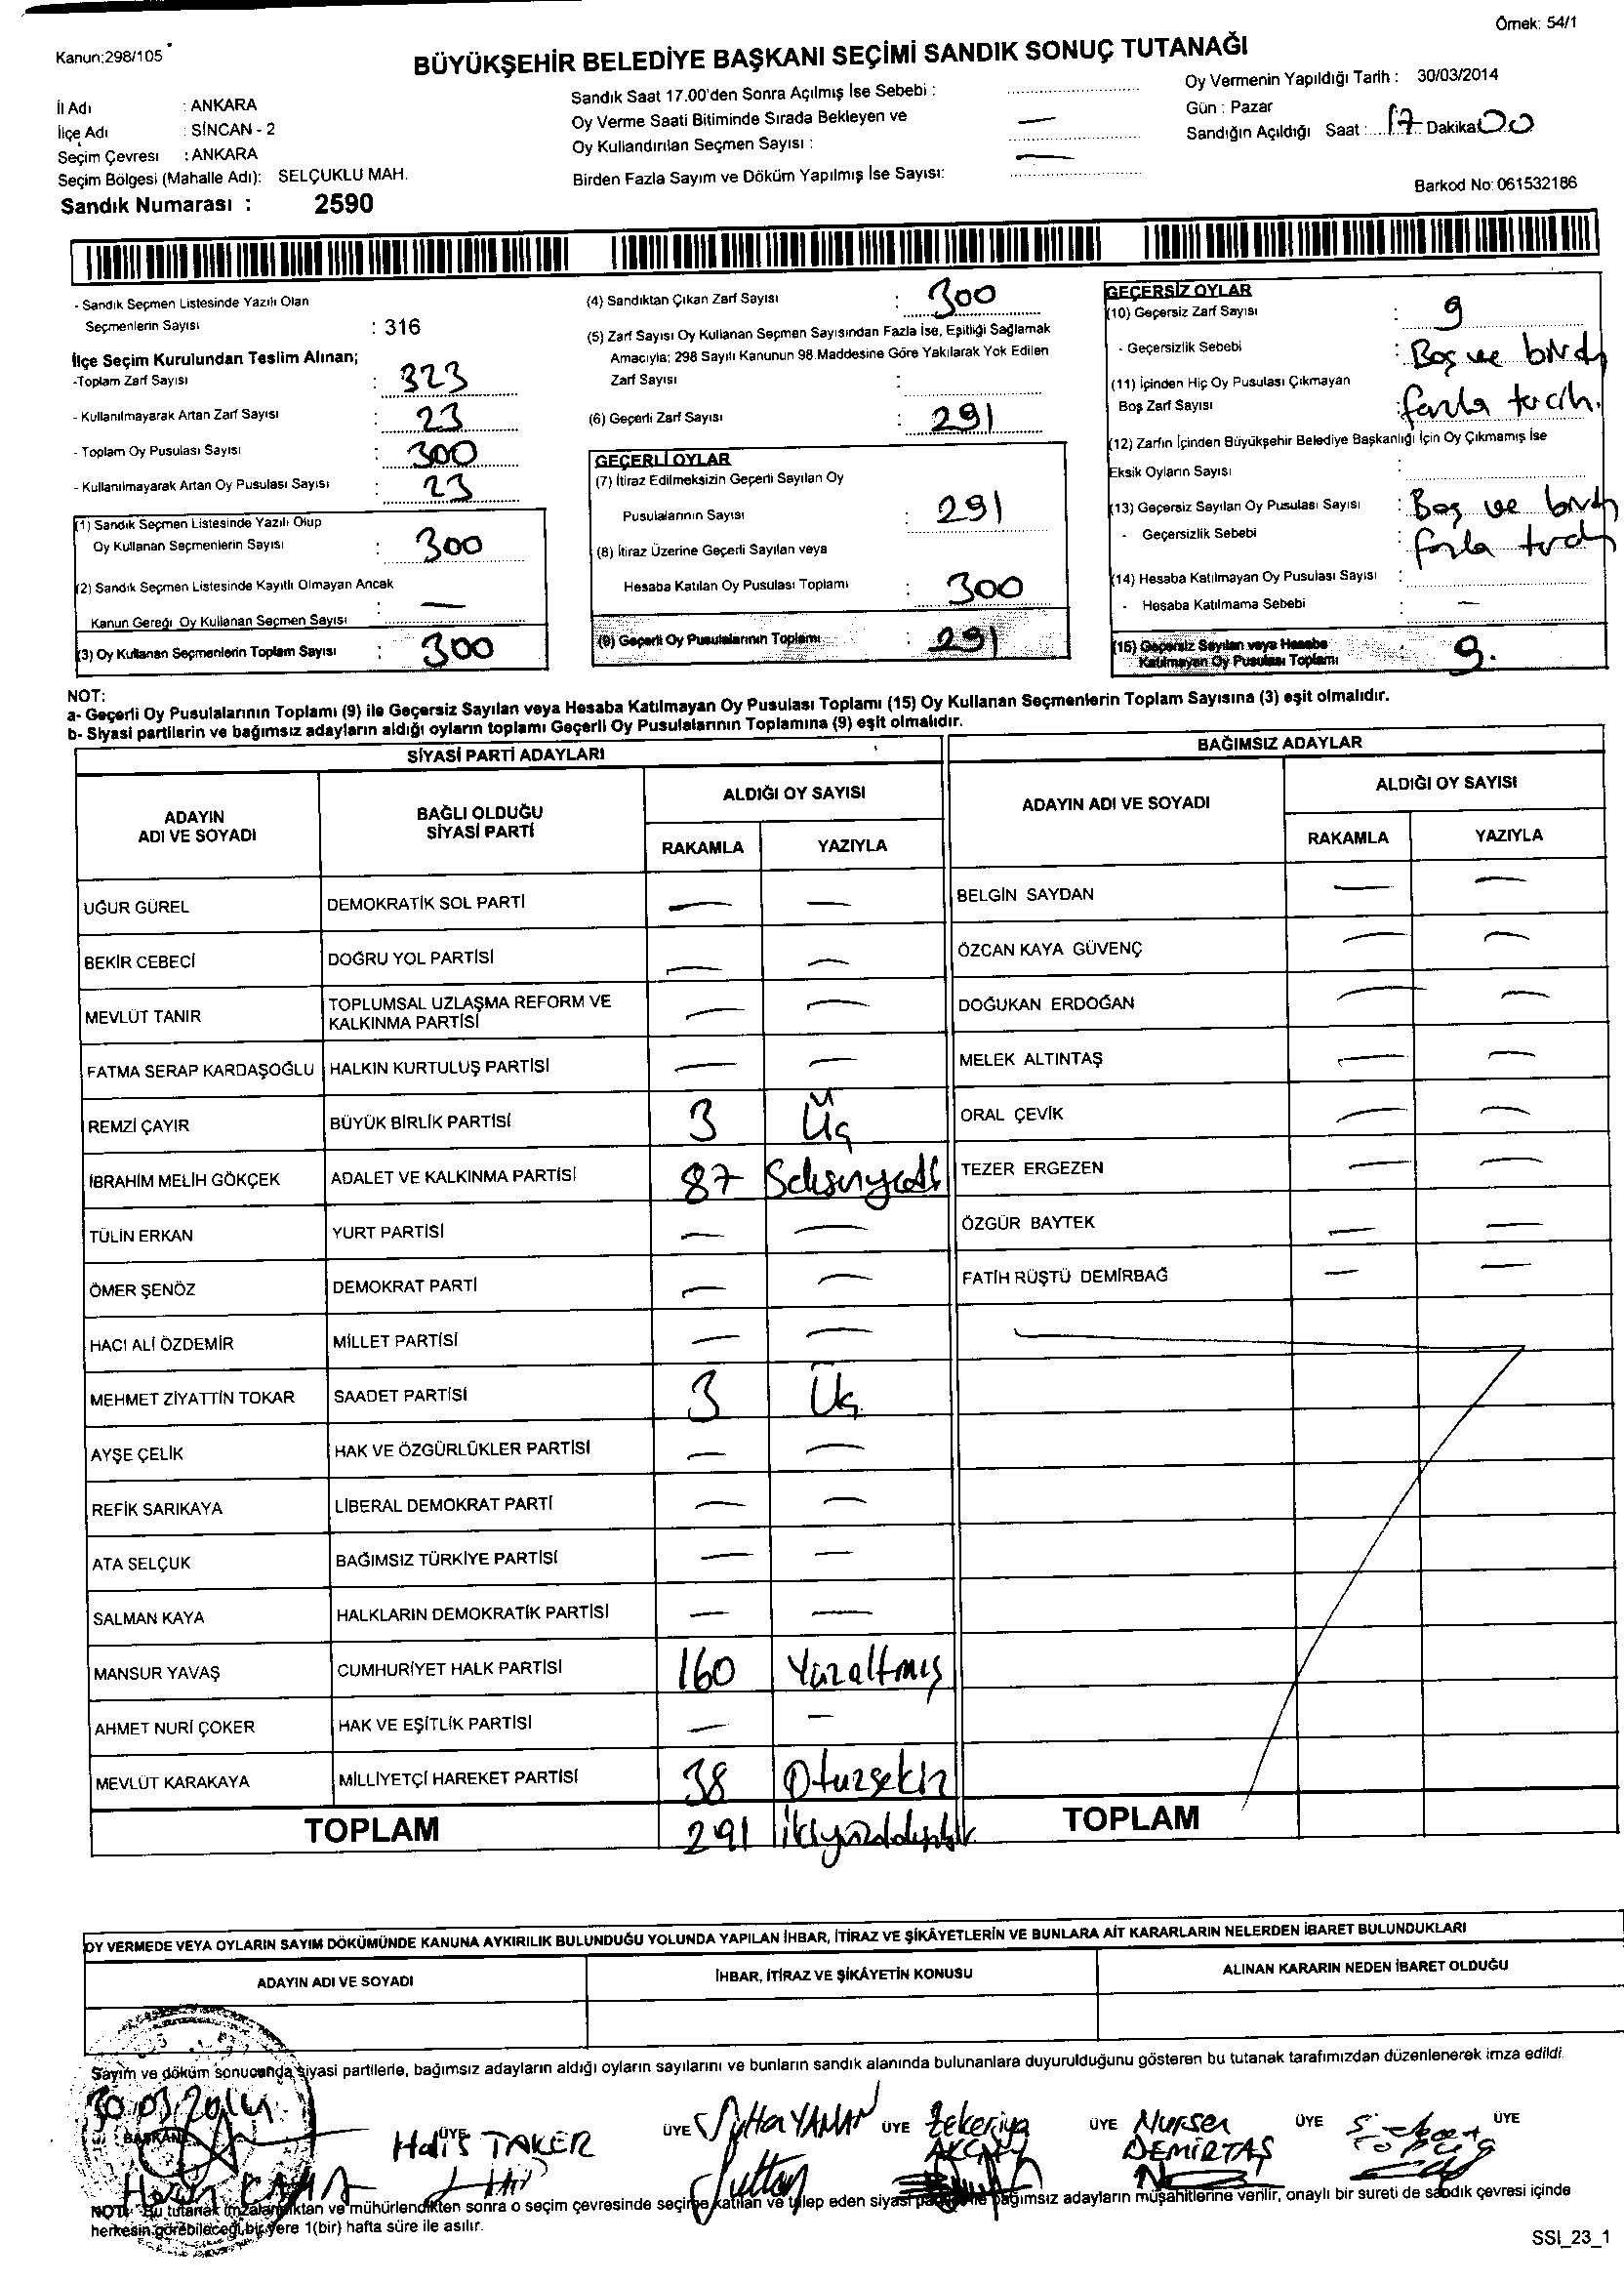 Örnek: 54/1
Kanun:298/105
BÜYÜKŞEHİR BELEDİYE BAŞKANI SEÇİMİ SANDIK SONUÇ TUTANAĞI
İl Adı : ANKARA
İlçe Adı : SİNCAN - 2
Seçim Çevresi : ANKARA
Seçim Bölgesi (Mahalle Adı): SELÇUKLU MAH.
Sandık Numarası : 2590
Sandık Saat 17.00'den Sonra Açılmış İse Sebebi :
Oy Verme Saati Bitiminde Sırada Bekleyen ve
Oy Kullandırılan Seçmen Sayısı : —
Birden Fazla Sayım ve Döküm Yapılmış İse Sayısı: —
Oy Vermenin Yapıldığı Tarih : 30/03/2014
Gün : Pazar
Sandığın Açıldığı Saat : 17 Dakika 00
Barkod No: 061532186
- Sandık Seçmen Listesinde Yazılı Olan
Seçmenlerin Sayısı : 316
İlçe Seçim Kurulundan Teslim Alınan;
-Toplam Zarf Sayısı : 323
- Kullanılmayarak Artan Zarf Sayısı : 23
- Toplam Oy Pusulası Sayısı : 300
- Kullanılmayarak Artan Oy Pusulası Sayısı : 23
(1) Sandık Seçmen Listesinde Yazılı Olup
Oy Kullanan Seçmenlerin Sayısı : 300
(2) Sandık Seçmen Listesinde Kayıtlı Olmayan Ancak
Kanun Gereği Oy Kullanan Seçmen Sayısı : —
(3) Oy Kullanan Seçmenlerin Toplam Sayısı : 300
(4) Sandıktan Çıkan Zarf Sayısı : 300
(5) Zarf Sayısı Oy Kullanan Seçmen Sayısından Fazla İse, Eşitliği Sağlamak
Amacıyla; 298 Sayılı Kanunun 98.Maddesine Göre Yakılarak Yok Edilen
Zarf Sayısı :
(6) Geçerli Zarf Sayısı : 291
GEÇERLİ OYLAR
(7) İtiraz Edilmeksizin Geçerli Sayılan Oy
Pusulalarının Sayısı : 291
(8) İtiraz Üzerine Geçerli Sayılan veya
Hesaba Katılan Oy Pusulası Toplamı : 300
(9) Geçerli Oy Pusulalarının Toplamı : 291
GEÇERSİZ OYLAR
(10) Geçersiz Zarf Sayısı : 9
- Geçersizlik Sebebi : Boş ve birden
(11) İçinden Hiç Oy Pusulası Çıkmayan
Boş Zarf Sayısı : fazla tercih.
(12) Zarfın İçinden Büyükşehir Belediye Başkanlığı İçin Oy Çıkmamış İse
Eksik Oyların Sayısı :
(13) Geçersiz Sayılan Oy Pusulası Sayısı : Boş ve birden
- Geçersizlik Sebebi : fazla tercih
(14) Hesaba Katılmayan Oy Pusulası Sayısı :
- Hesaba Katılmama Sebebi : —
(15) Geçersiz Sayılan veya Hesaba
Katılmayan Oy Pusulası Toplamı : 9.
NOT:
a- Geçerli Oy Pusulalarının Toplamı (9) ile Geçersiz Sayılan veya Hesaba Katılmayan Oy Pusulası Toplamı (15) Oy Kullanan Seçmenlerin Toplam Sayısına (3) eşit olmalıdır.
b- Siyasi partilerin ve bağımsız adayların aldığı oyların toplamı Geçerli Oy Pusulalarının Toplamına (9) eşit olmalıdır.
SİYASİ PARTİ ADAYLARI
ADAYIN ADI VE SOYADI
BAĞLI OLDUĞU SİYASİ PARTİ
ALDIĞI OY SAYISI
RAKAMLA YAZIYLA
UĞUR GÜREL DEMOKRATİK SOL PARTİ — —
BEKİR CEBECİ DOĞRU YOL PARTİSİ — —
MEVLÜT TANIR TOPLUMSAL UZLAŞMA REFORM VE KALKINMA PARTİSİ — —
FATMA SERAP KARDAŞOĞLU HALKIN KURTULUŞ PARTİSİ — —
REMZİ ÇAYIR BÜYÜK BİRLİK PARTİSİ 3 Üç
İBRAHİM MELİH GÖKÇEK ADALET VE KALKINMA PARTİSİ 87 Seksenyedi
TÜLİN ERKAN YURT PARTİSİ — —
ÖMER ŞENÖZ DEMOKRAT PARTİ — —
HACI ALİ ÖZDEMİR MİLLET PARTİSİ — —
MEHMET ZİYATTİN TOKAR SAADET PARTİSİ 3 Üç
AYŞE ÇELİK HAK VE ÖZGÜRLÜKLER PARTİSİ — —
REFİK SARIKAYA LİBERAL DEMOKRAT PARTİ — —
ATA SELÇUK BAĞIMSIZ TÜRKİYE PARTİSİ — —
SALMAN KAYA HALKLARIN DEMOKRATİK PARTİSİ — —
MANSUR YAVAŞ CUMHURİYET HALK PARTİSİ 160 Yüzaltmış
AHMET NURİ ÇOKER HAK VE EŞİTLİK PARTİSİ — —
MEVLÜT KARAKAYA MİLLİYETÇİ HAREKET PARTİSİ 38 Otuzsekiz
TOPLAM 291 ikiyüzdoksanbir
BAĞIMSIZ ADAYLAR
ADAYIN ADI VE SOYADI
ALDIĞI OY SAYISI
RAKAMLA YAZIYLA
BELGİN SAYDAN — —
ÖZCAN KAYA GÜVENÇ — —
DOĞUKAN ERDOĞAN — —
MELEK ALTINTAŞ — —
ORAL ÇEVİK — —
TEZER ERGEZEN — —
ÖZGÜR BAYTEK — —
FATİH RÜŞTÜ DEMİRBAĞ — —
TOPLAM
OY VERMEDE VEYA OYLARIN SAYIM DÖKÜMÜNDE KANUNA AYKIRILIK BULUNDUĞU YOLUNDA YAPILAN İHBAR, İTİRAZ VE ŞİKÂYETLERİN VE BUNLARA AİT KARARLARIN NELERDEN İBARET BULUNDUKLARI
ADAYIN ADI VE SOYADI İHBAR, İTİRAZ VE ŞİKÂYETİN KONUSU ALINAN KARARIN NEDEN İBARET OLDUĞU
Sayım ve döküm sonucunda siyasi partilerle, bağımsız adayların aldığı oyların sayılarını ve bunların sandık alanında bulunanlara duyurulduğunu gösteren bu tutanak tarafımızdan düzenlenerek imza edildi.
30.03.2014
BAŞKAN ÜYE ÜYE ÜYE ÜYE ÜYE ÜYE
Halis TAKER
YAMAN
Zekeriya
Nursen DEMİRTAŞ
NOT: Bu tutanak imzalandıktan ve mühürlendikten sonra o seçim çevresinde seçime katılan ve talep eden siyasi parti ile bağımsız adayların müşahitlerine verilir, onaylı bir sureti de sandık çevresi içinde
herkesin görebileceği bir yere 1(bir) hafta süre ile asılır.
SSI_23_1